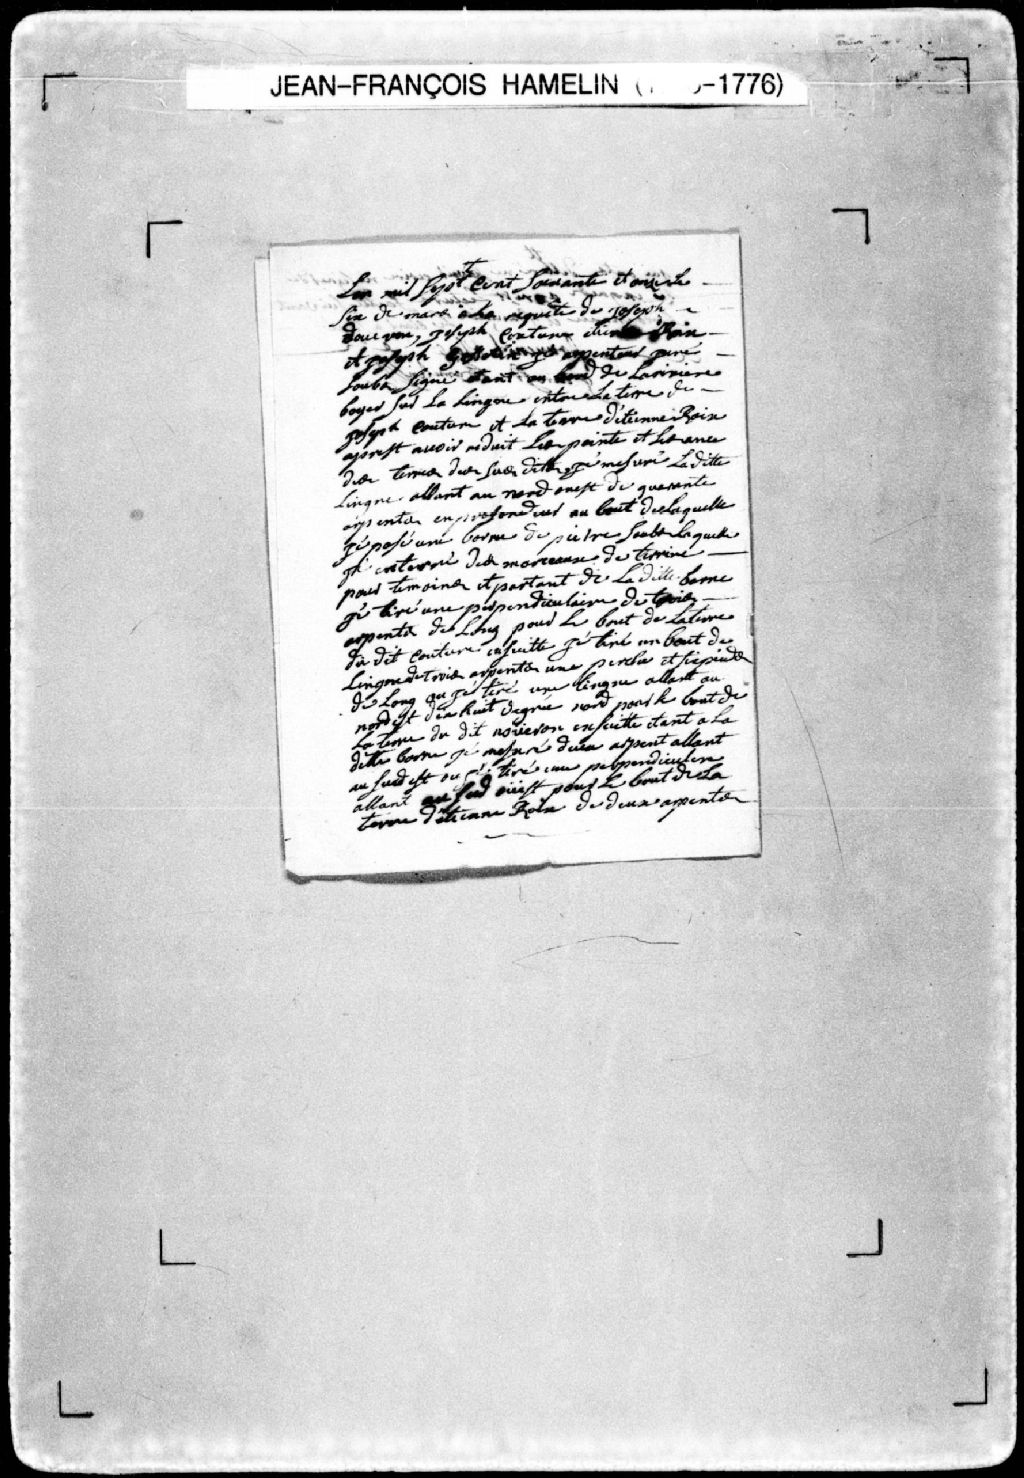 JEAN-FRANÇOIS HAMELIN ( -1776)
Lan mil Sept Cent Soixante et onze le
six de mars a la requete de joseph
joseph Couture Roix
et joseph gé arpenteur juré
Soubs Signé etant au bord de La riviere
boyer sur La Lingne entre La terre de
joseph Couture et La terre d'étienne Roix
aprest avoir reduit Les pointe et Les ance
des terres des sus dits gé mesuré La ditte
Lingne allant au nord ouest de quarante
arpents en profondeur au bout de Laquelle
gé posé une borne de pierre Soubs Laquelle
gé enterré des morceaux de terrine
pour temoins et partant de La ditte borne
gé tiré une perpendiculaire de trois
arpents de Long pour Le bout de La terre
du dit Couture ensuitte gé tiré un bout de
Lingne de trois arpents une perche et six pieds
de Long ou gé tiré une Lingne allant au
nord est dix huit degrée nord pour le bout de
La terre du dit ensuitte etant a La
ditte borne gé mesuré deux arpent allant
au sud est ou gé tiré une perpendiculere
allant au sud ouest pour Le bout de La
terre d'étienne Roix de deux arpents